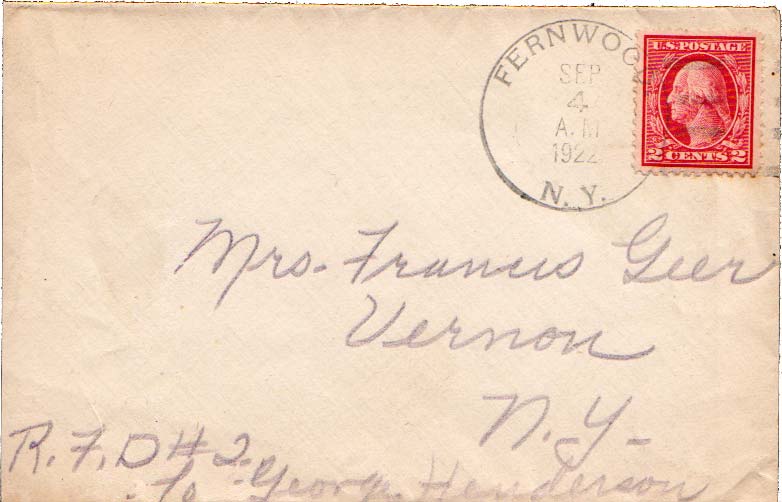 FERNWOO
SEP
4
A.M
1922
N.Y.
U.S. POSTAGE
2 CENTS 2
Mrs. Francis Geer
Vernon
N.Y.
R.F.D #2.
George Henderson